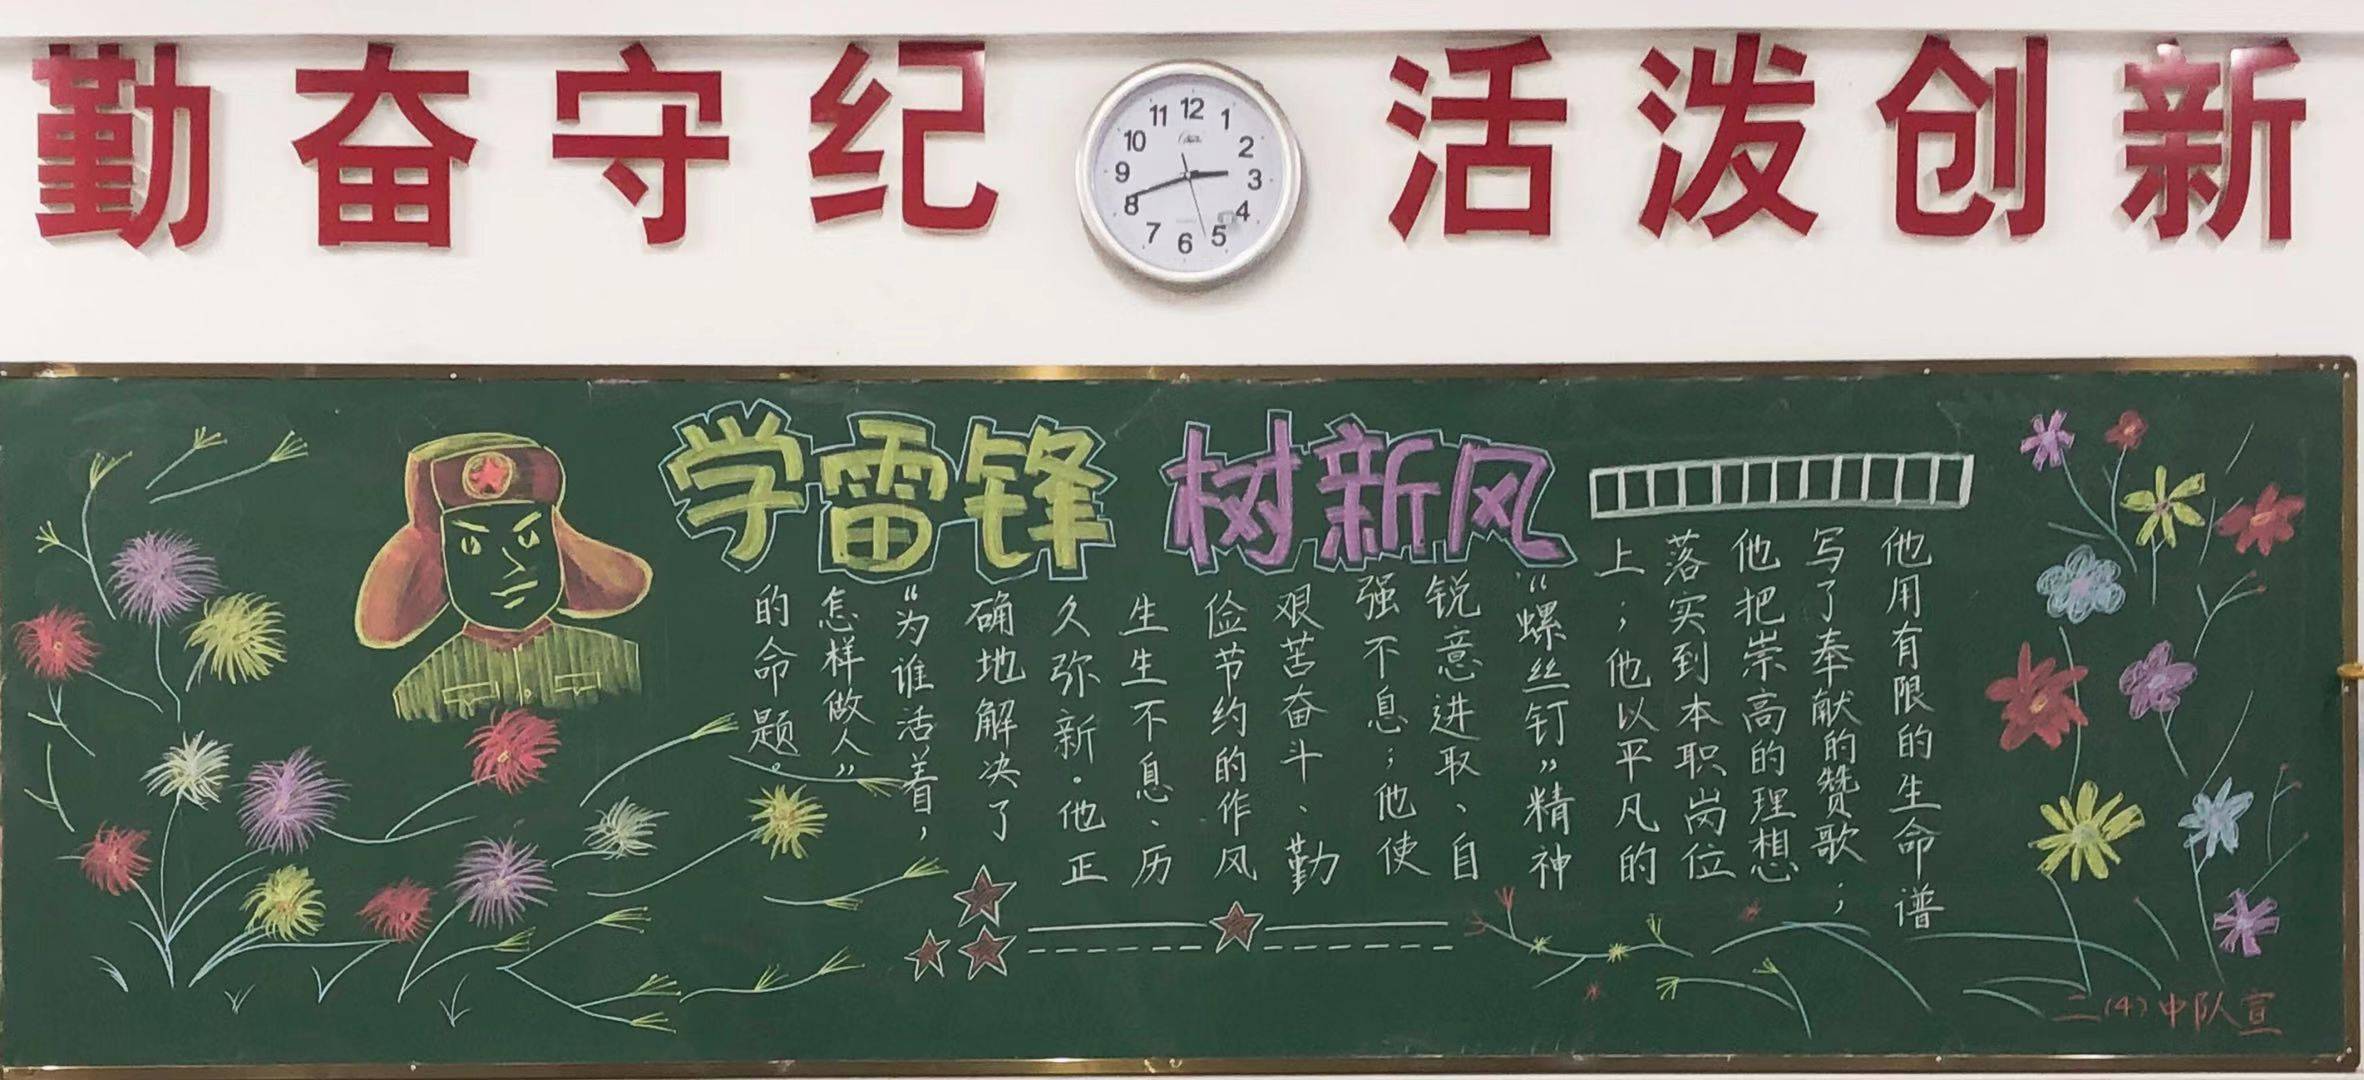 勤奋守纪
活泼创新
12
1
2
3
4
5
6
7
8
9
10
11
学雷锋 树新风
他用有限的生命谱
写了奉献的赞歌；
他把崇高的理想
落实到本职岗位
上；他以平凡的
“螺丝钉”精神
锐意进取、自
强不息；他使
艰苦奋斗、勤
俭节约的作风
生生不息、历
久弥新。他正
确地解决了
“为谁活着，
怎样做人”
的命题。
二(4)中队宣